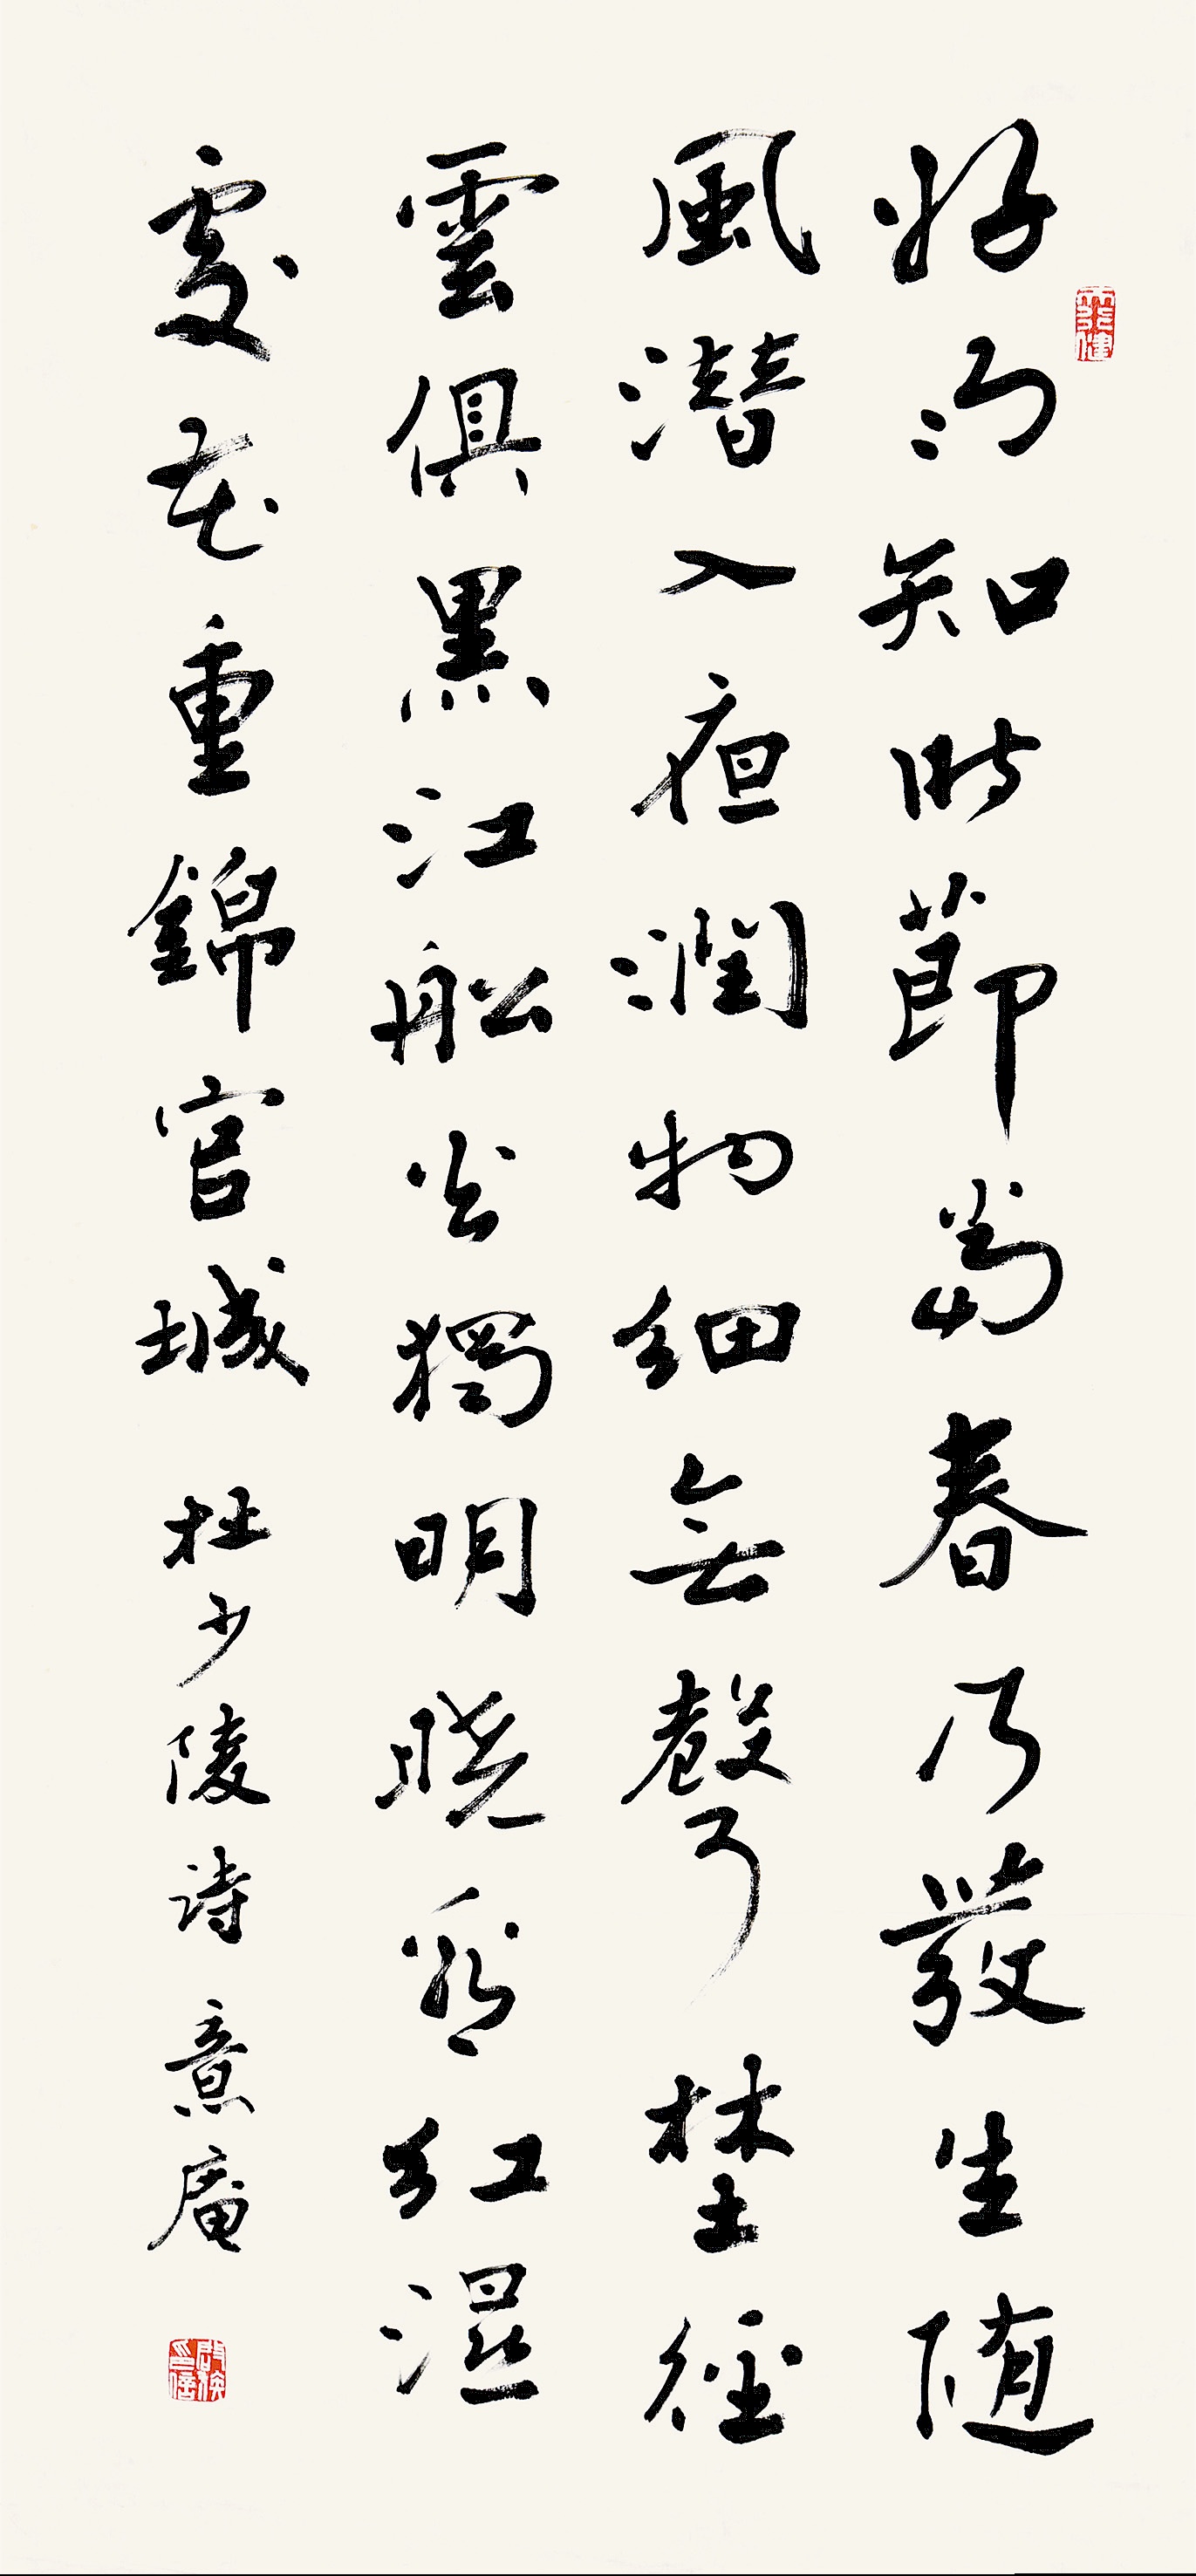 天行健
好雨知時節當春乃發生随
風潜入夜潤物細無聲埜徑
雲俱黑江舩火獨明曉看紅濕
處花重錦官城 杜少陵詩 意庵